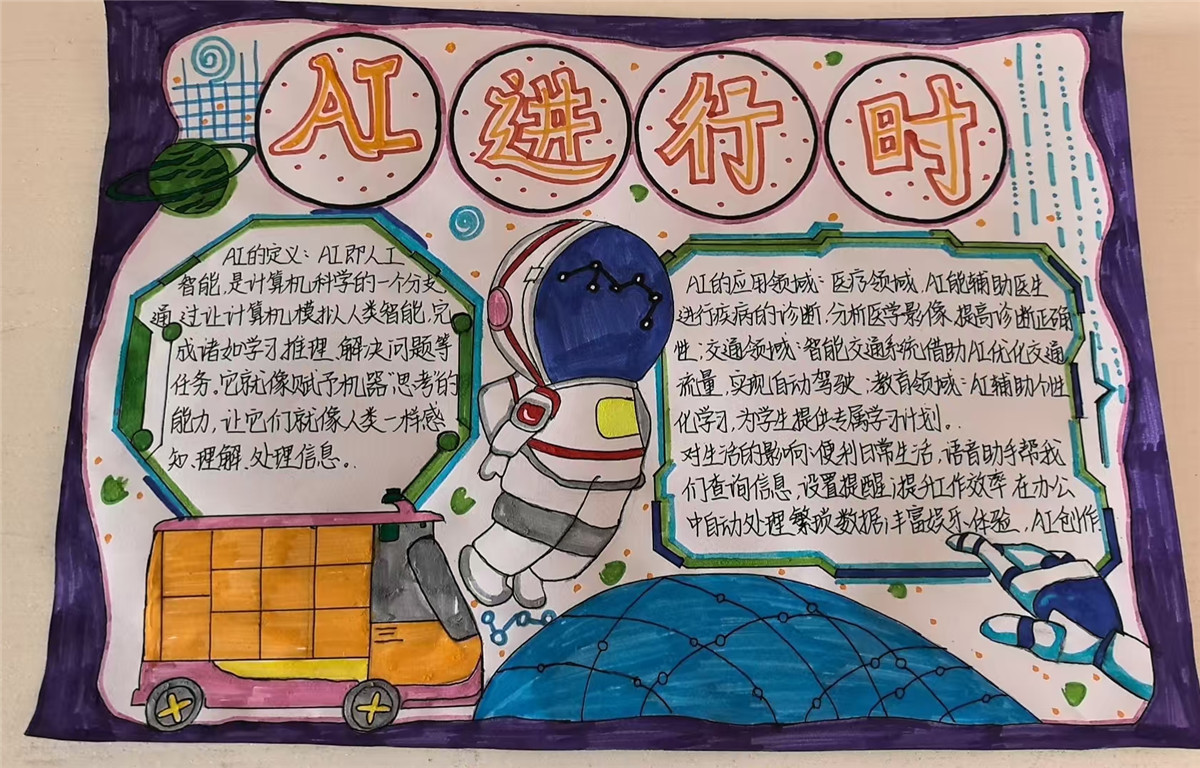 AI进行时
AI的定义：AI即人工
智能，是计算机科学的一个分支
通过让计算机模拟人类智能，完
成诸如学习推理、解决问题等
任务。它就像赋予机器思考的
能力，让它们就像人类一样感
知、理解、处理信息。
AI的应用领域：医疗领域，AI能辅助医生
进行疾病的诊断，分析医学影像，提高诊断正确
性；交通领域：智能交通系统借助AI优化交通
流量，实现自动驾驶；教育领域：AI辅助个性
化学习，为学生提供专属学习计划。
对生活的影响：便利日常生活，语音助手帮我
们查询信息，设置提醒；提升工作效率，在办公
中自动处理繁琐数据；丰富娱乐体验，AI创作